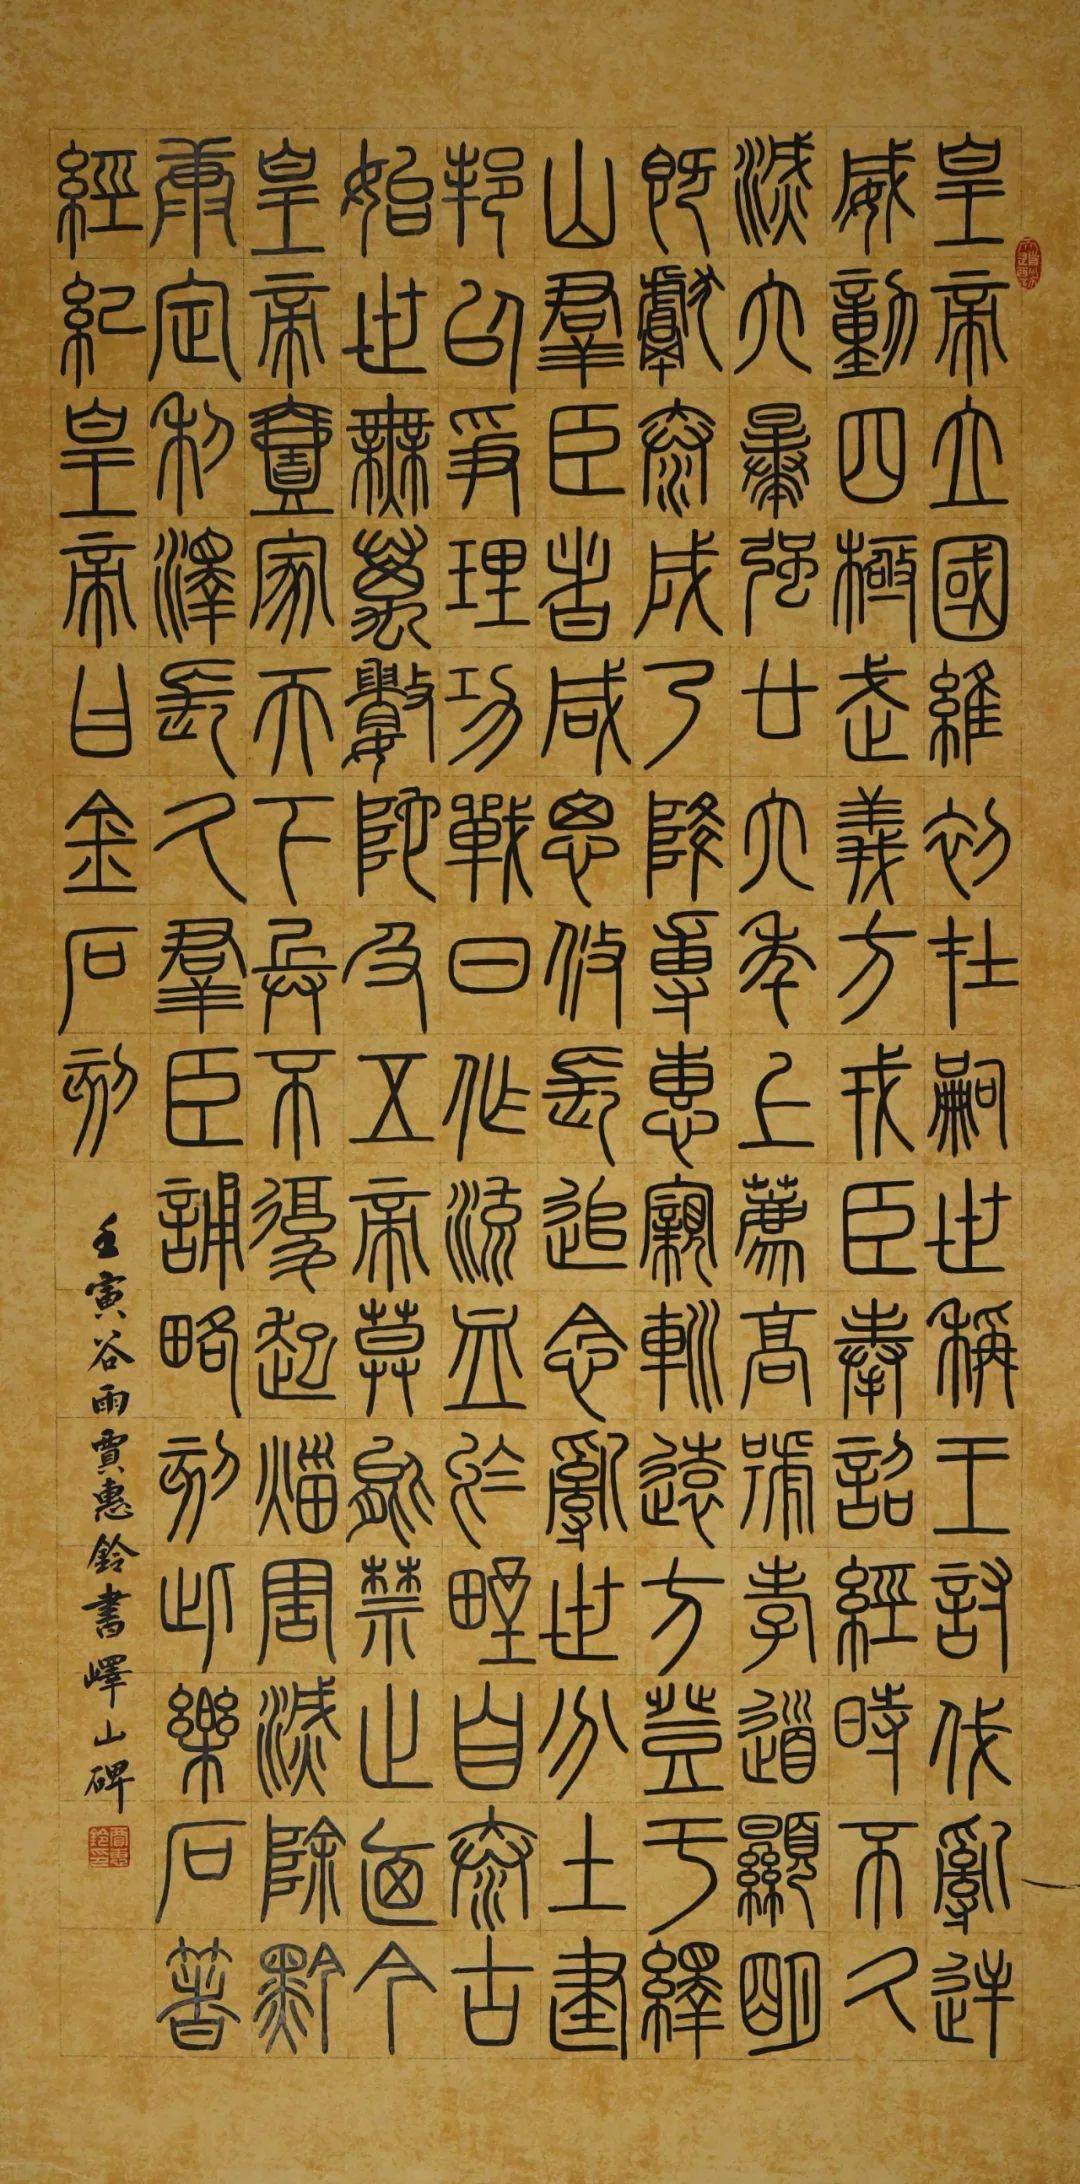 皇帝立國維初在嗣世稱王討伐亂逆
威動四極武義方戎臣奉詔經時不久
滅六暴強廿六年上薦高號孝道顯明
既獻泰成乃降專惠親巡遠方登于繹
山羣臣者咸思攸長追念亂世分土建
邦以爭理功戰日作流血於野自泰古
始世無萬數陀及五帝莫能禁止迺今
皇帝壹家天下兵不復起災害滅除黔
康定利澤長久羣臣誦略刻此樂石著
經紀皇帝曰金石刻
壬寅谷雨賈惠鈴書嶧山碑
賈惠鈴印